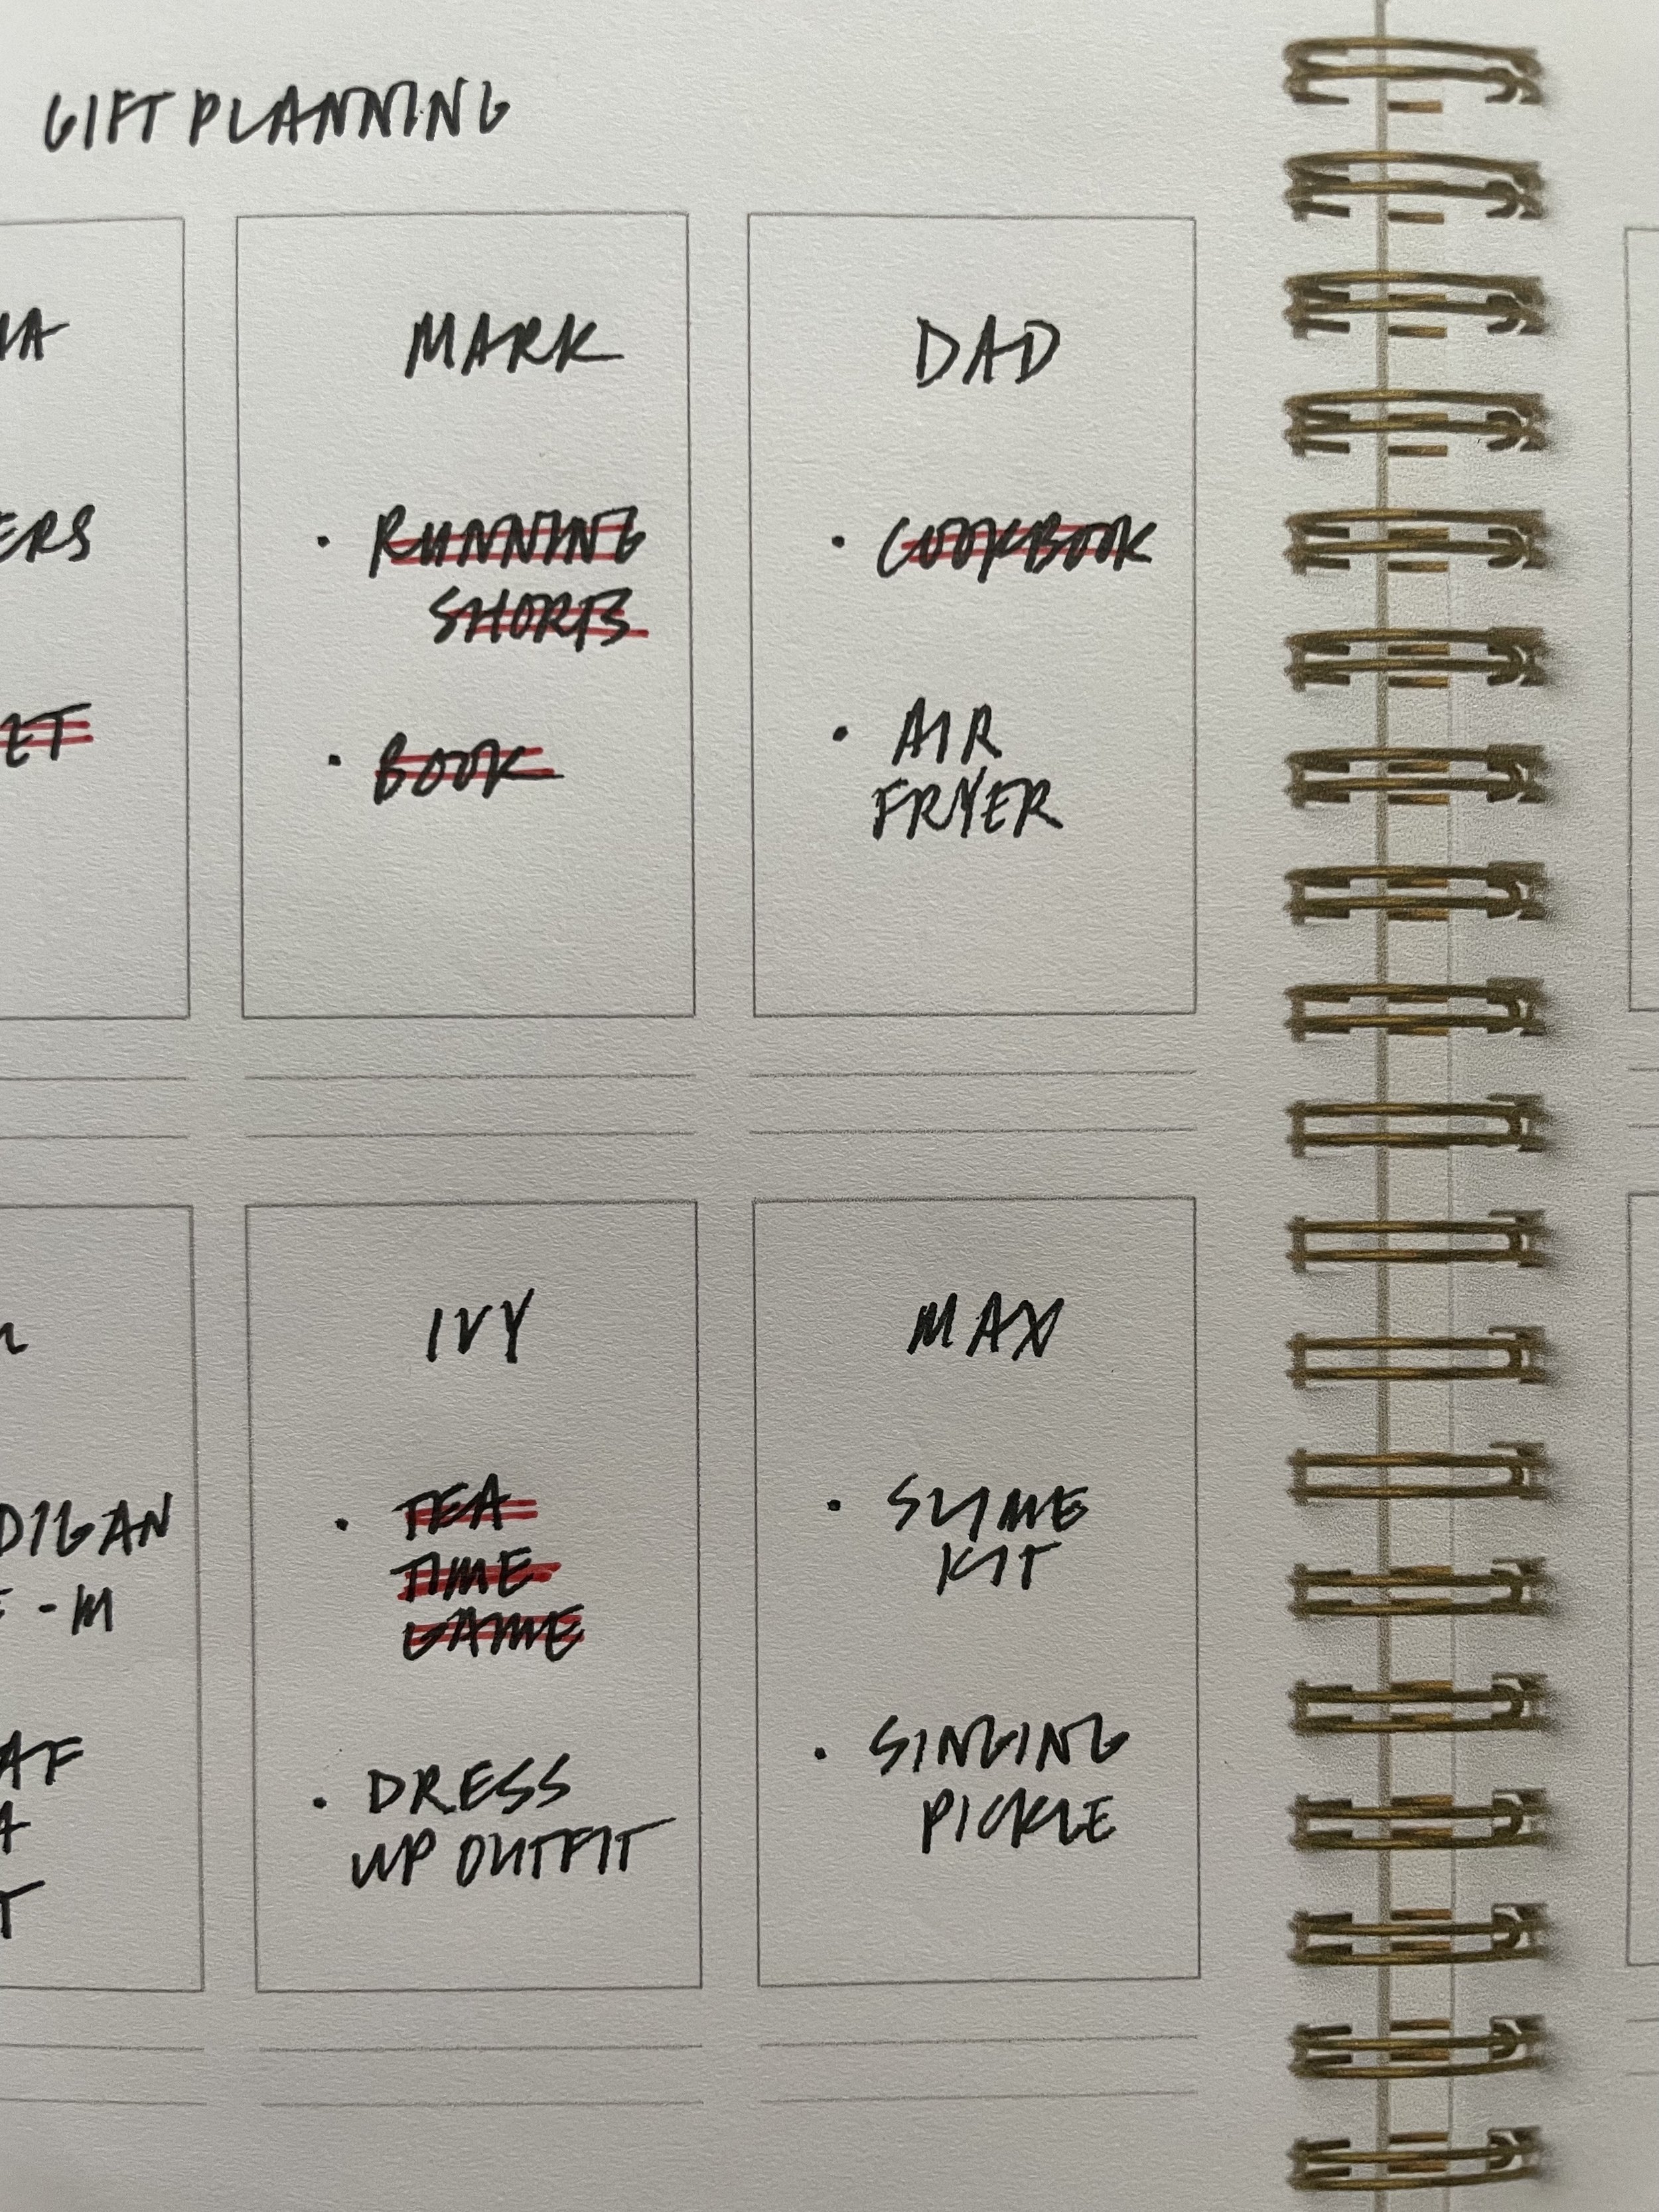 GIFT PLANNING
MARK
RUNNING
SHORTS
BOOK
DAD
COOKBOOK
AIR
FRYER
IVY
TEA
TIME
GAME
DRESS
UP OUTFIT
MAX
SLIME
KIT
SINGING
PICKLE